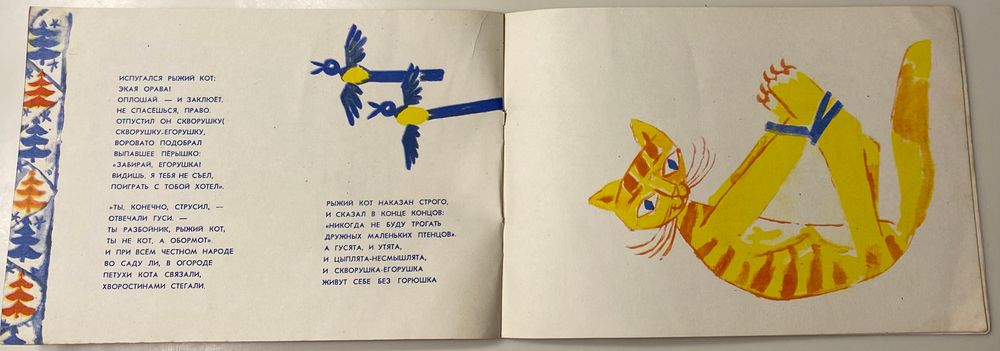 ИСПУГАЛСЯ РЫЖИЙ КОТ:
ЭКАЯ ОРАВА!
ОПЛОШАЙ — И ЗАКЛЮЁТ,
НЕ СПАСЕШЬСЯ, ПРАВО.
ОТПУСТИЛ ОН СКВОРУШКУ(
СКВОРУШКУ-ЕГОРУШКУ,
ВОРОВАТО ПОДОБРАЛ
ВЫПАВШЕЕ ПЁРЫШКО:
«ЗАБИРАЙ, ЕГОРУШКА!
ВИДИШЬ, Я ТЕБЯ НЕ СЪЕЛ,
ПОИГРАТЬ С ТОБОЙ ХОТЕЛ».
«ТЫ, КОНЕЧНО, СТРУСИЛ, —
ОТВЕЧАЛИ ГУСИ. —
ТЫ РАЗБОЙНИК, РЫЖИЙ КОТ,
ТЫ НЕ КОТ, А ОБОРМОТ».
И ПРИ ВСЕМ ЧЕСТНОМ НАРОДЕ
ВО САДУ ЛИ, В ОГОРОДЕ
ПЕТУХИ КОТА СВЯЗАЛИ,
ХВОРОСТИНАМИ СТЕГАЛИ.
РЫЖИЙ КОТ НАКАЗАН СТРОГО,
И СКАЗАЛ В КОНЦЕ КОНЦОВ:
«НИКОГДА НЕ БУДУ ТРОГАТЬ
ДРУЖНЫХ МАЛЕНЬКИХ ПТЕНЦОВ».
А ГУСЯТА, И УТЯТА,
И ЦЫПЛЯТА-НЕСМЫШЛЯТА,
И СКВОРУШКА-ЕГОРУШКА
ЖИВУТ СЕБЕ БЕЗ ГОРЮШКА